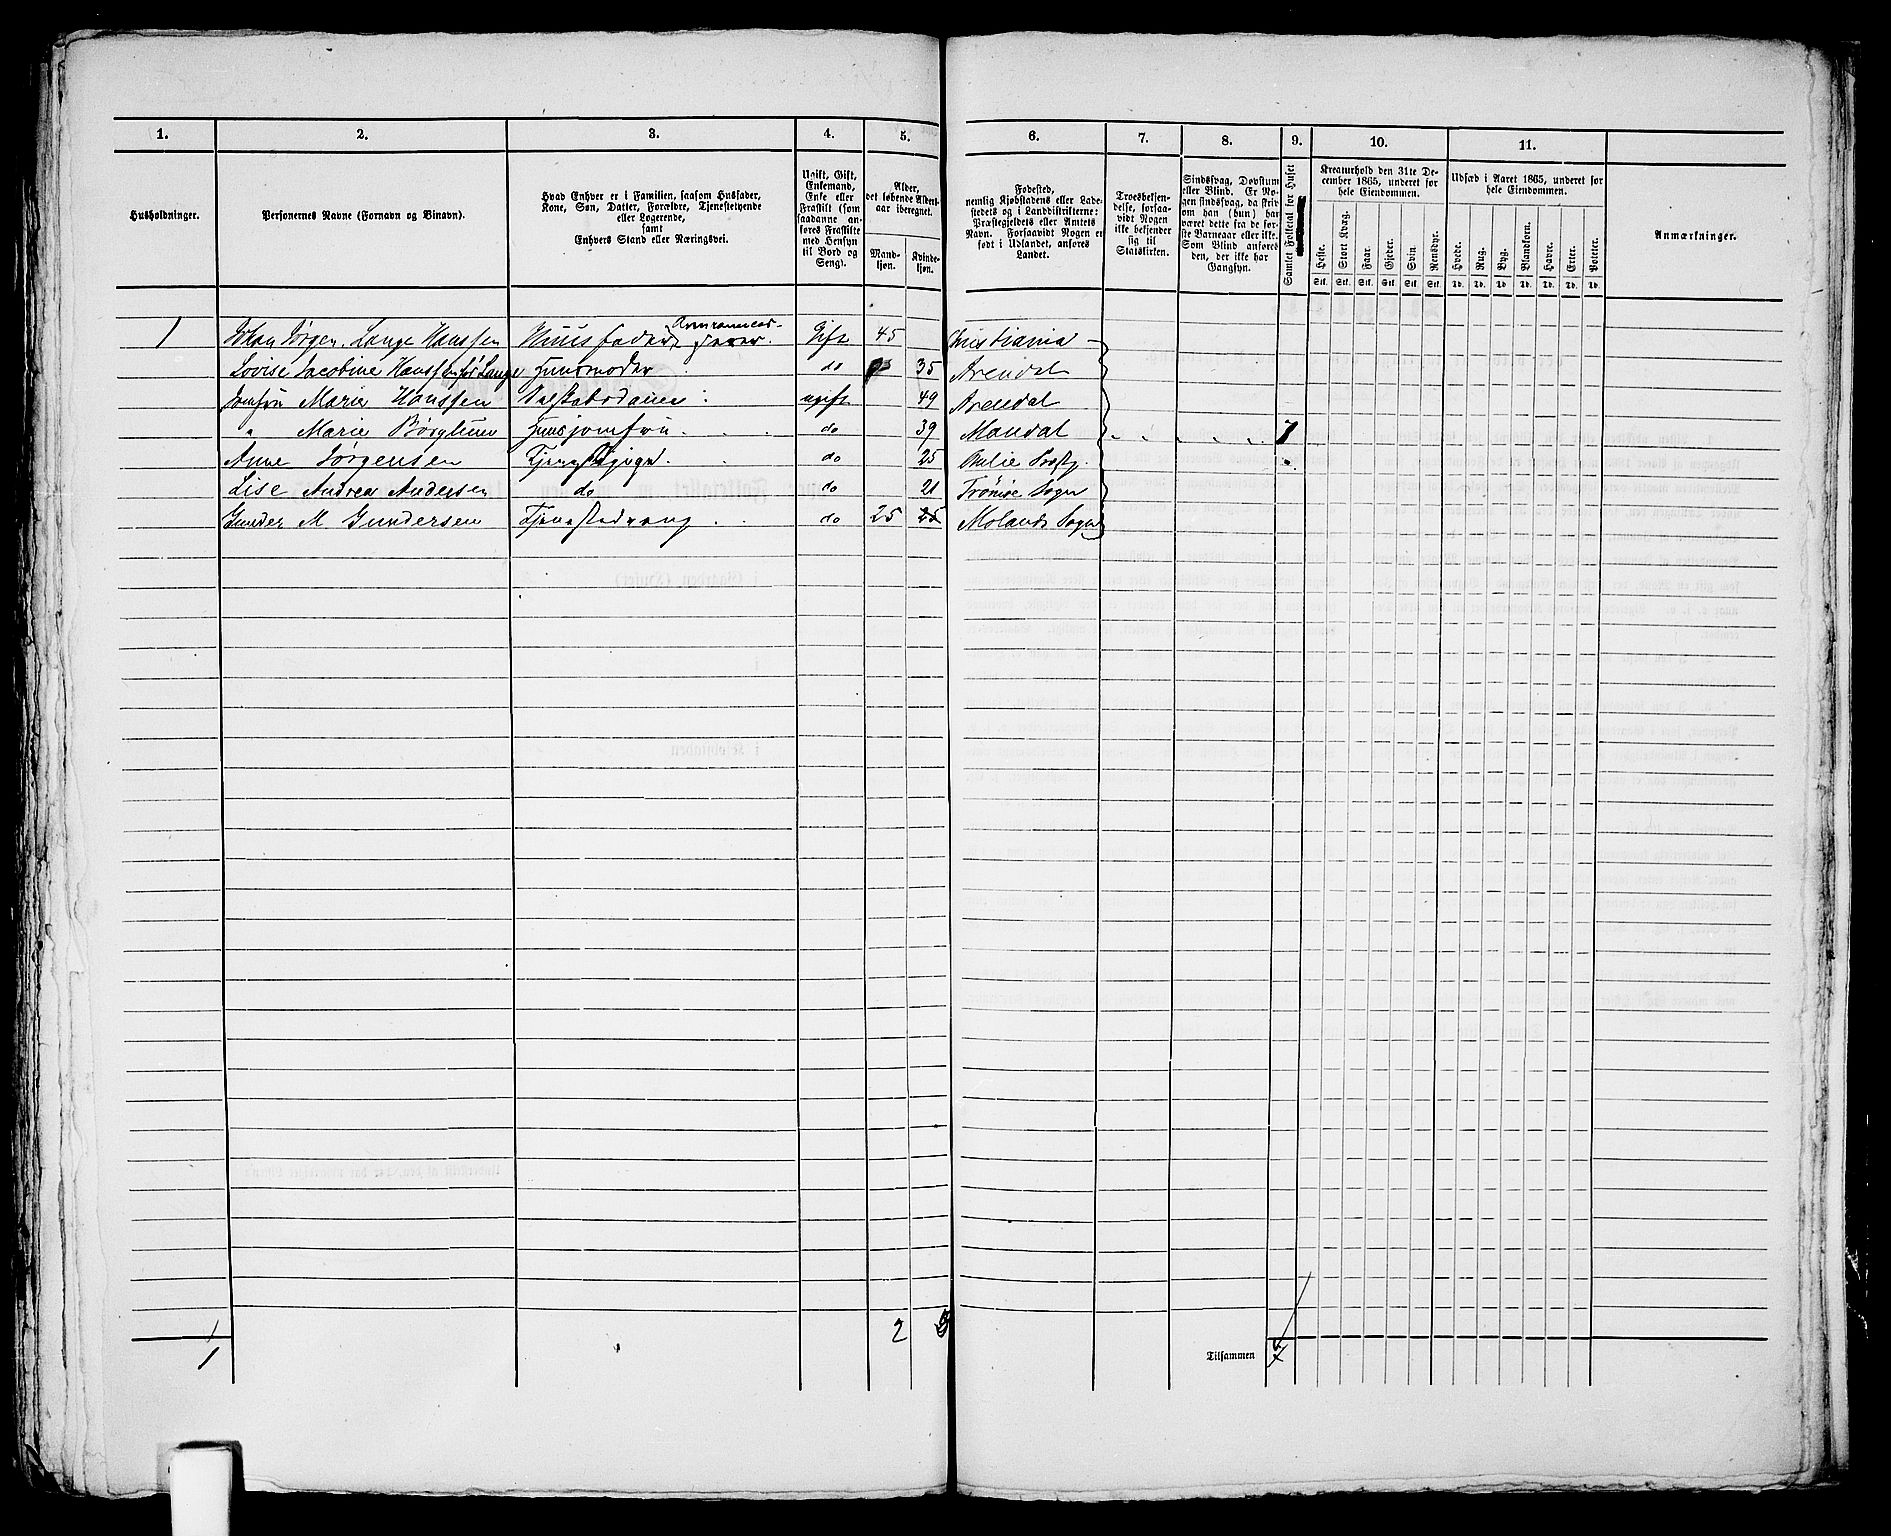 1. 2. 3. 4. 5. 6. 7. 8. 9. 10. 11.
Husholdninger.
Personernes Navne (Fornavn og Binavn).
Hvad Enhver er i Familien, saasom Husfader,
Kone, Søn, Datter, Forældre, Tjenestetyende
eller Logerende,
samt
Enhvers Stand eller Næringsvei.
Ugift, Gift,
Enkemand,
Enke eller
Fraskilt (som
saadanne an-
føres Fraskilte
med Hensyn
til Bord og
Seng).
Alder,
det løbende Alders-
aar iberegnet.
Mand-
kjøn.
Kvinde-
kjøn.
Fødested,
nemlig Kjøbstadens eller Lade-
stedets og i Landdistrikterne:
Præstegjeldets eller Amtets
Navn. Forsaavidt Nogen er
født i Udlandet, anføres
Landet.
Troesbekjen-
delse, forsaa-
vidt Nogen
ikke bekjender
sig til
Statskirken.
Sindssvag, Døvstum
eller Blind. Er No-
gen sindssvag, da skriv
om han (hun) har
været dette fra de før-
ste Barneaar eller ikke.
Som Blind anføres
den, der ikke har
Gangsyn.
Samlet Folketal for Huset
Kreaturhold den 31te De-
cember 1865, underet for
hele Eiendommen.
Heste. Stort Kvæg. Faar. Gjeder. Svin. Rensdyr.
Stk. Stk. Stk. Stk. Stk. Stk.
Udsæd i Aaret 1865, underet for
hele Eiendommen.
Hvede. Rug. Byg. Blandkorn. Havre. Erter. Poteter.
Td. Td. Td. Td. Td. Td. Td.
Anmærkninger.
1 Johan Jørgen Lange Hanssen Huusfader Gift 45 Christiania
Lovise Jacobine Hanssen født Lange Huusmoder do 35 Arendal
Jomfru Marie Hanssen Selskabsdame ugift 49 Arendal
" Marie Børglum Huusjomfru do 39 Mandal 7
Anne Jørgensen Tjenestepige do 25 Præstgj.
Lise Andrea Andersen do do 21 Tromø Sogn
Gunder M Gundersen Tjenestedreng do 25 25 Molands Sogn
1 2 5
Tilsammen 7